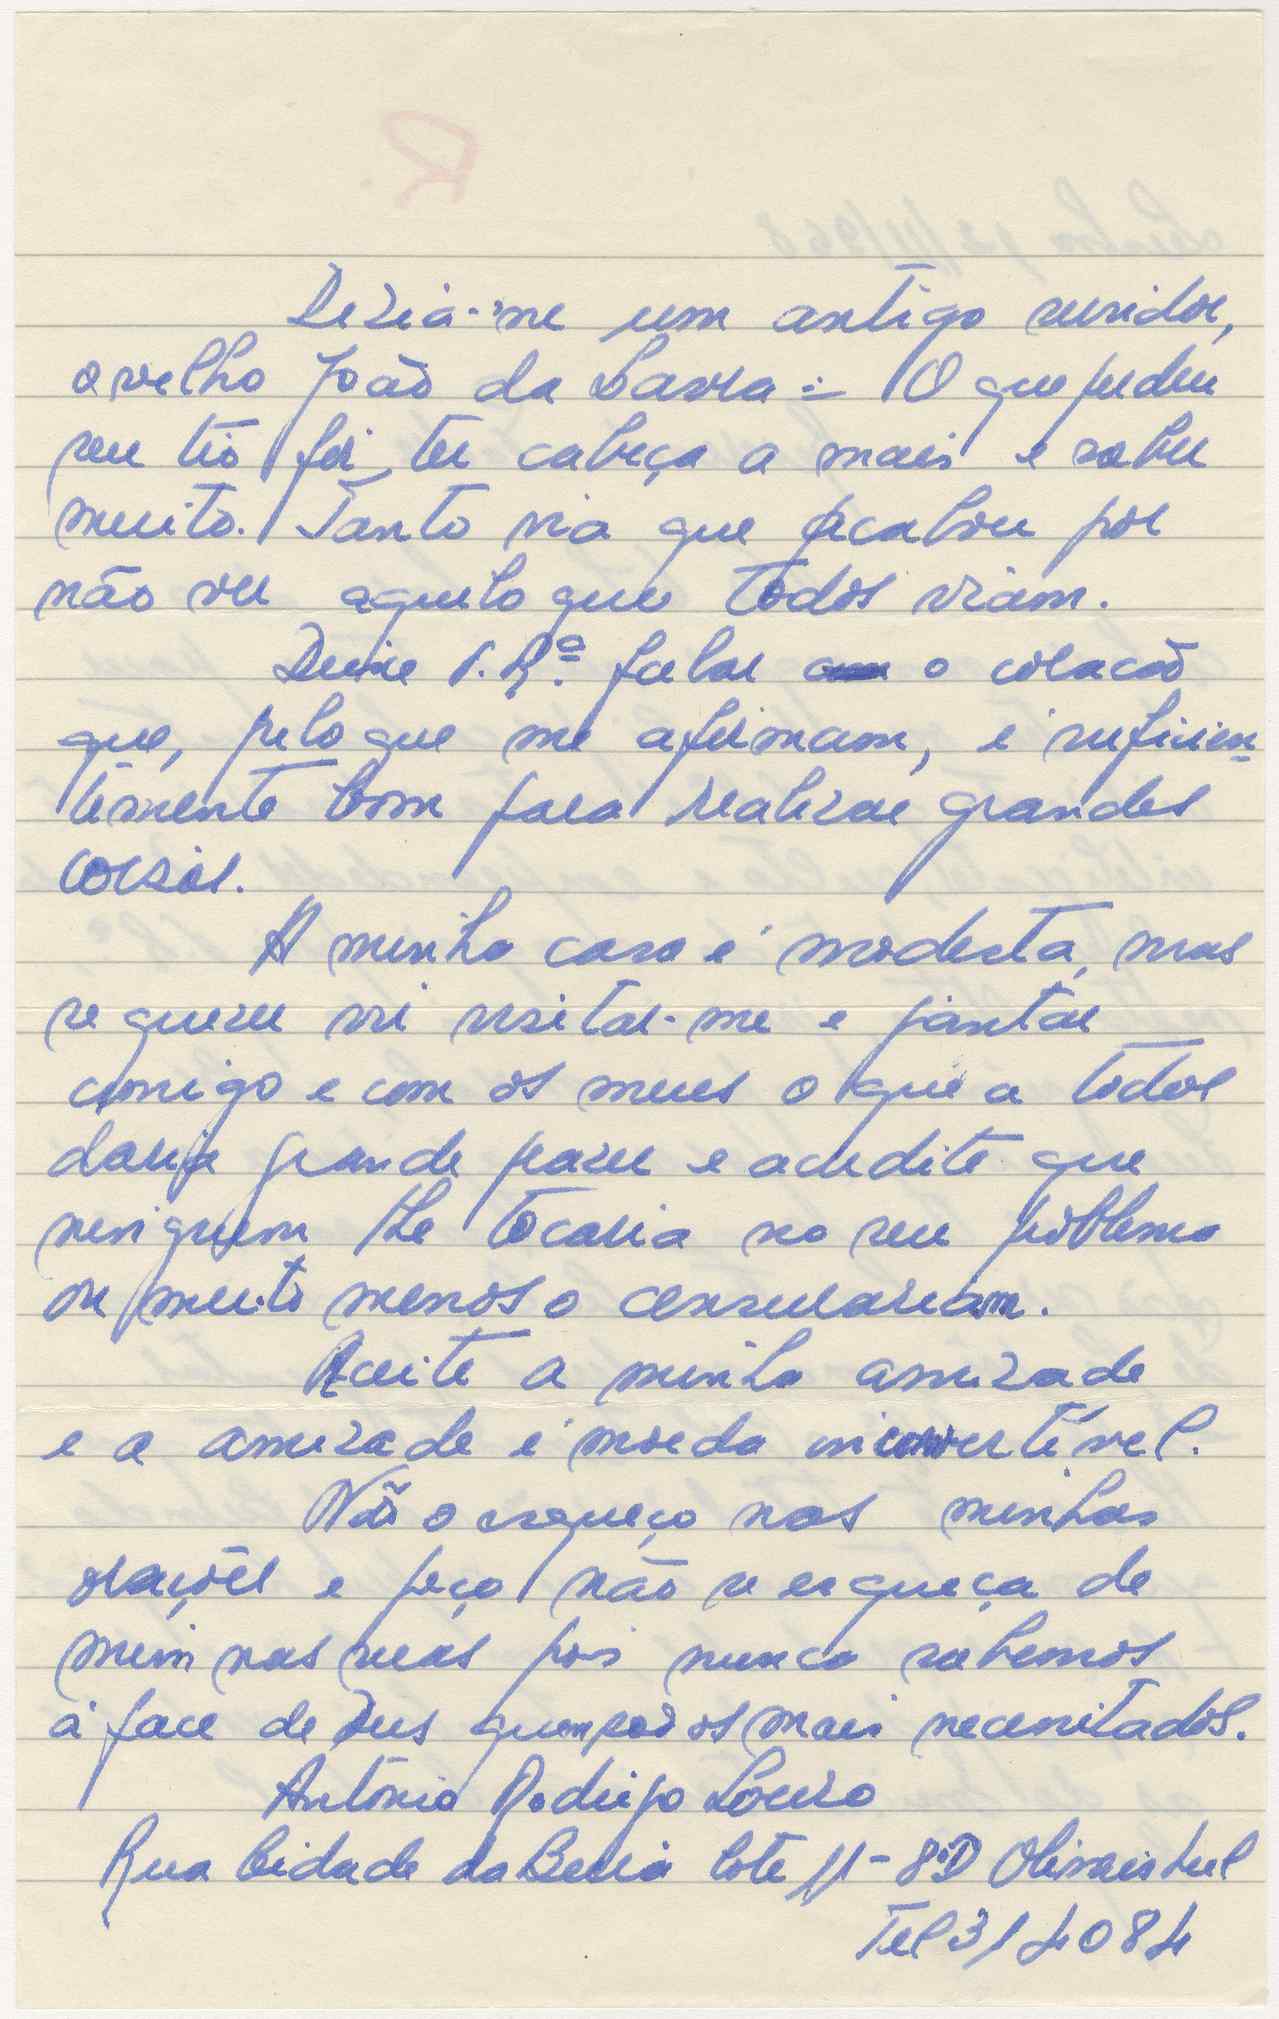 Dezia-me um antigo servidor,
o velho João da Savra := O que perdeu
seu tio foi ter cabeça a mais e saber
muito. Tanto via que acabou por
não ver aquilo que todos viam.
Deixe V. Rª. falar o coração
que, pelo que me afirmam, é suficien-
temente bom para realizar grandes
coisas.
A minha casa é modesta, mas
se quizer vir visitar-me e jantar
comigo e com os meus o que a todos
daria grande prazer e acredite que
ninguem lhe tocaria no seu problema
ou muito menos o censurariam.
Aceite a minha amizade
e a amizade é moeda inconvertível.
Não o esqueço nas minhas
orações e peço não se esqueça de
mim nas suas pois nunca sabemos
á face de Deus quem são os mais necessitados.
António Rodrigo Louro
Rua Cidade da Beira lote 11-8ºD Olivais Sul
Tel 314084
R.